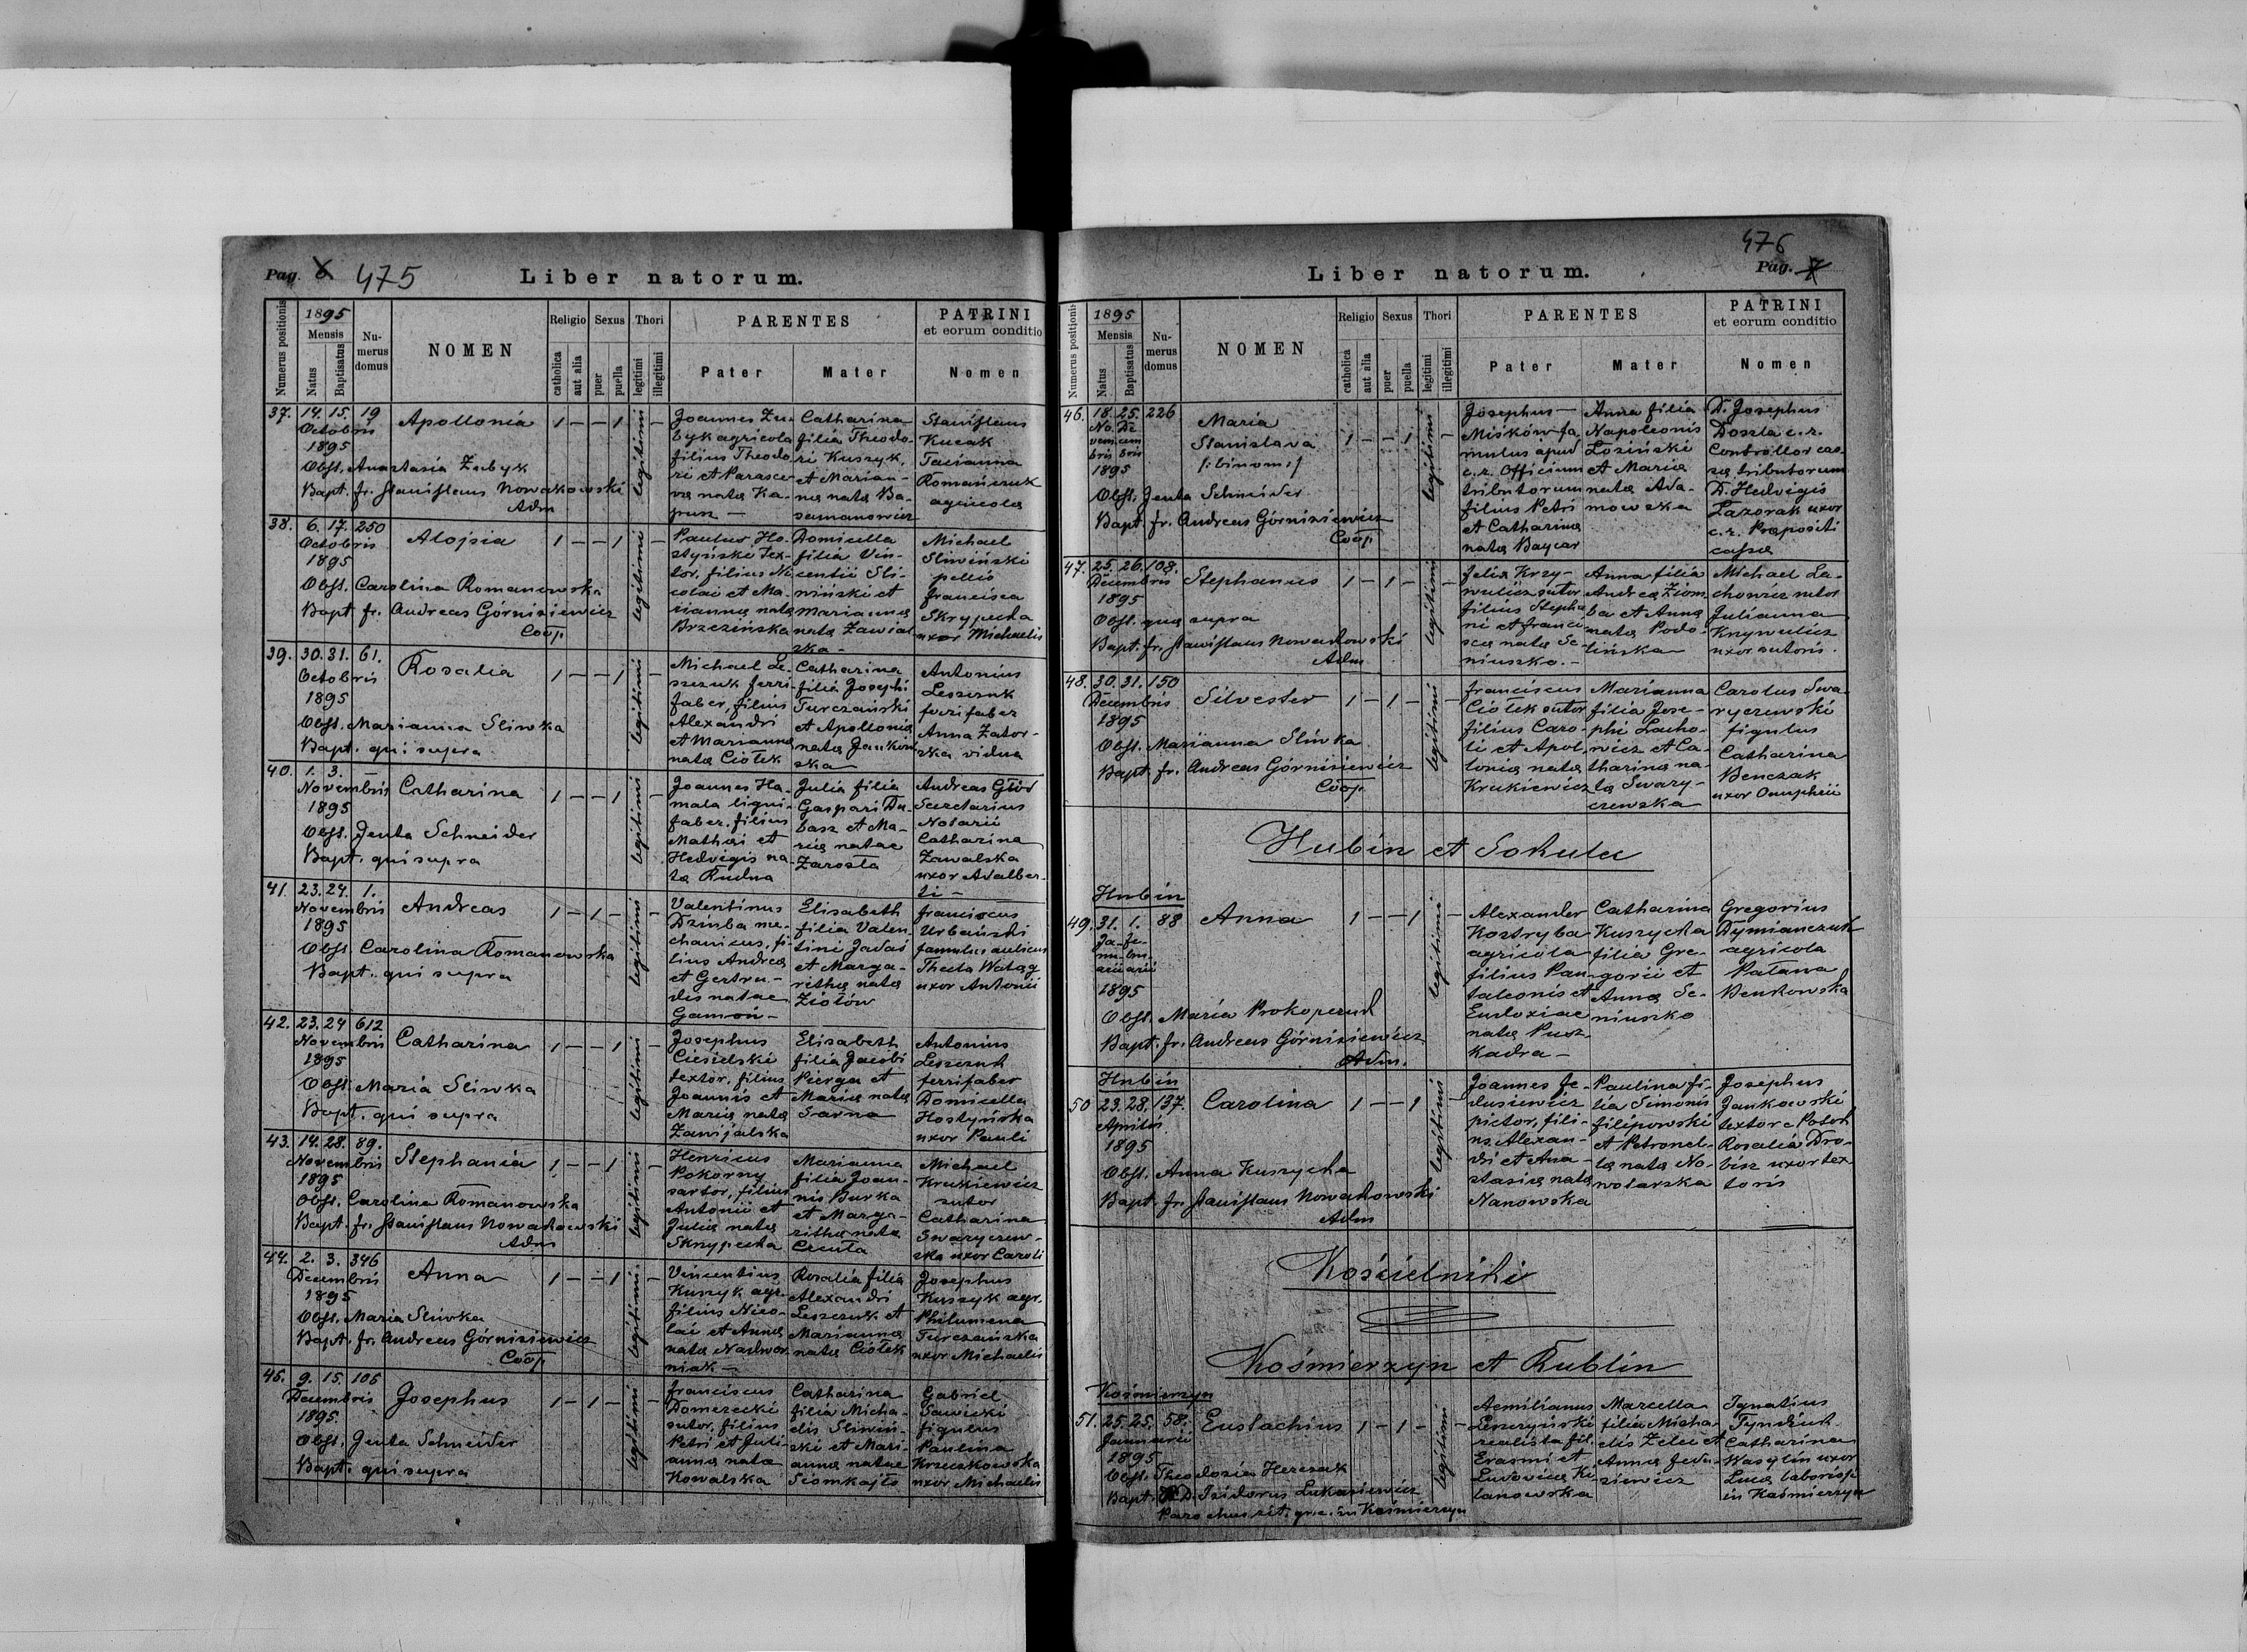 Pag. 6 475
Liber natorum.
Numerus positionis
1895
Mensis
Natus
Baptisatus
Numerus domus
NOMEN
Religio
catholica
aut alia
Sexus
puer
puella
Thori
legitimi
illegitimi
PARENTES
Pater
Mater
PATRINI
et eorum conditio
Nomen
37. 14. 15. 19 Apollonia 1 – – 1 legitimi –
Octobris
1895
Obst. Anastasia Zubyk
Bapt. fr. Stanislaus Nowakowski
Adm
Joannes Zu-
byk agricola
filius Theodo
ri et Parasce
væ natæ Ka-
pusz –
Catharina
filia Theodo-
ri Kuszyk,
et Marian-
næ natæ Ba-
samanowicz
Stanislaus
Kucak
Tacianna
Romańczuk
agricolæ
38. 6. 17. 250 Alojsia 1 – – 1 legitimi –
Octobris
1895
Obst. Carolina Romanowska
Bapt fr. Andreas Górnisiewicz
Coop
Paulus Ho-
styński Tex-
tor, filius Ni
colai et Ma-
riannæ natæ
Brzezińska
Domicella
filia Vin-
centii Sli-
wiński et
Mariannæ
natæ Zawial
ska –
Michael
Sliwiński
pellio
Francisca
Skrypecka
uxor Michaelis
39. 30. 31. 61. Rosalia 1 – – 1 legitimi –
Octobris
1895
Obst. Marianna Sliwka
Bapt. qui supra
Michael Le-
szczuk ferri-
faber, filius
Alexandri
et Mariannæ
natæ Ciołek
Catharina
filia Josephi
Turczański
et Apolloniæ
natæ Jankow
ska
Antonius
Leszczuk
ferrifaber
Anna Zator-
ska vidua
40. 1. 3. – Catharina 1 – – 1 legitimi –
Novembris
1895
Obst. Jenta Schneider
Bapt. qui supra
Joannes Ha-
mala ligni-
faber, filius
Mathæi et
Hedvigis na-
tæ Rudna
Julia filia
Gaspari Du-
basz et Ma-
riæ natae
Zarosta
Andreas Głód
Secretarius
Notarii
Catharina
Zawalska
uxor Adalber-
ti –
41. 23. 24. 1. Andreas 1 – 1 – legitimi –
Novembris
1895
Obst Carolina Romanowska
Bapt. qui supra
Valentinus
Dziuba me-
chanicus, fi-
lius Andreæ
et Gertru-
dis natae
Gamoń –
Elisabeth
filia Valen-
tini Jadaś
et Marga-
rithæ natæ
Ziołów
Franciscus
Urbański
famulus aulicus
Thecla Watag
uxor Antonii
42. 23. 24 612 Catharina 1 – – 1 legitimi –
Novembris
1895
Obst Maria Sliwka
Bapt. qui supra
Josephus
Ciesielski
textor, filius
Joannis et
Mariæ natæ
Zawijalska
Elisabeth
filia Jacobi
Pierga et
Mariæ natæ
Sarna
Antonius
Leszczuk
ferrifaber
Domicella
Hostyńska
uxor Pauli
43. 14. 28. 89. Stephania 1 – – 1 legitimi –
Novembris
1895
Obst. Carolina Romanowska
Bapt. fr. Stanislaus Nowakowski
Adm
Henricus
Pokorny
sartor, filius
Antonii et
Juliæ natæ
Skrypecka
Marianna
filia Joan-
nis Burka
et Marga-
rithæ natæ
Michael
Krukiewicz
sutor
Catharina
Swaryczew-
ska uxor Caroli
44. 2. 3. 346 Anna 1 – – 1 legitimi –
Decembris
1895
Obst. Maria Sliwka
Bapt. fr. Andreas Górnisiewicz
Coop
Vincentius
Kuszyk agr.
filius Nico-
lai et Annæ
natæ Nadwor-
niak –
Rosalia filia
Alexandri
Leszczuk et
Mariannæ
natæ Ciołek
Josephus
Kuszyk agr.
Philumena
Turczańska
uxor Michaelis
45. 9. 15. 105 Josephus 1 – 1 – legitimi –
Decembris
1895.
Obst. Jenta Schneider
Bapt. qui supra
Franciscus
Domerecki
sutor, filius
Petri et Juli-
annæ natæ
Kowalska
Catharina
filia Micha-
elis Sliwiń-
ski et Mari-
annæ natae
Siomkajło
Gabriel
Sawicki
figulus
Paulina
Krzeczkowska
uxor Michaelis
476
Pag. 7
Liber natorum.
Numerus positionis
1895
Mensis
Natus
Baptisatus
Numerus domus
NOMEN
Religio
catholica
aut alia
Sexus
puer
puella
Thori
legitimi
illegitimi
PARENTES
Pater
Mater
PATRINI
et eorum conditio
Nomen
46. 18. 25. 226 Maria
Stanislava 1 – – 1 legitimi –
/:binom:/
No- De
vem cem
bris bris
1895
Obst. Jenta Schneider
Bapt. fr. Andreas Górnisiewicz
Coop
Josephus –
Miśków fa-
mulus apud
c.r. Officium
tributorum
filius Petri
et Catharinæ
natæ Baycar
Anna filia
Napoleonis
Lozinski
et Mariæ
natæ Ada-
mowska
D. Josephus
Doszla c.r.
Controllor cas-
sæ tributorum
D. Hedvigis
Lazorak uxor
c.r. Præpositi
cassæ
47. 25. 26. 108. Stephanus 1 – 1 – legitimi –
Decembris
1895
Obst. quæ supra
Bapt. fr. Stanislaus Nowakowski
Adm
Felix Krzy-
wulicz sutor
filius Stepha
ni et Franci-
scæ natæ Se-
niuszko. –
Anna filia
Andreæ Ziom
ba et Annæ
natæ Podo-
lińska
Michael La-
chowicz sutor
Julianna
Krzywulicz
uxor sutoris.
48. 30. 31. 150 Silvester 1 – 1 – legitimi –
Decembris
1895
Obst. Marianna Sliwka
Bapt. fr. Andreas Górnisiewicz
Coop
Franciscus
Ciołek sutor
filius Caro-
li et Apol-
loniæ natæ
Krukiewicz
Marianna
filia Jose-
phi Lacho-
wicz et Ca-
tharinæ na-
tæ Swary-
czewska
Carolus Swa-
ryczewski
figulus
Catharina
Benczak
uxor Onuphrii
Hubin et Sokulec
Hubin
49. 31. 1. 88 Anna 1 – – 1 legitimi –
Ja- Fe-
nu- bru
arii arii
1895
Obst. Maria Prokopczuk
Bapt. fr. Andreas Górnisiewicz
Adm.
Alexander
Kostryba
agricola
filius Pan-
taleonis et
Eudoxiae
natæ Pusz-
kadra –
Catharina
Kuszycka
filia Gre-
gorii et
Annæ Se-
niuszko
Gregorius
Dymianczuk
agricola
Palawa
Benkowska
Hubin
50 23. 28. 137. Carolina 1 – – 1 legitimi –
Aprilis
1895
Obst. Anna Kuszycka
Bapt. fr. Stanislaus Nowakowski
Adm
Joannes Fe-
dusiewicz
pictor, fili-
us Alexan-
dri et Ana-
stasiæ natæ
Nanowska
Paulina fi-
lia Simonis
Filipowski
et Petronel-
læ natæ No-
wolarska
Josephus
Jankowski
textor e Potok
Rosalia Dro-
bisz uxor tex
toris
Kościelniki
Kośmierzyn et Rublin
Kośmierzyn
51. 25. 25. 58. Eustachius 1 – 1 – legitimi –
Januarii
1895
Obst. Theodozia Herczak
Bapt. D. Isidorus Lukasiewicz
Parochus rit. gr. in Kośmierzyn
Aemilianus
Leszczyński
realista fil.
Erasmi et
Ludovicæ Ki
lanowska
Marcella
filia Micha-
elis Zelec et
Annæ Fedu-
siewicz
Ignatius
Tyndiuk
Catharina
Wasylin uxor
Lucæ laboriosi
in Kośmierzyn